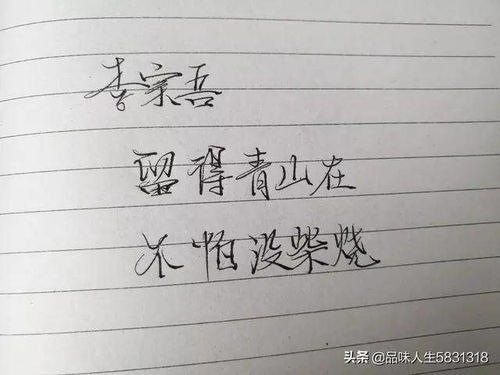 李宗吾
留得青山在
不怕没柴烧
头条 @品味人生5831318